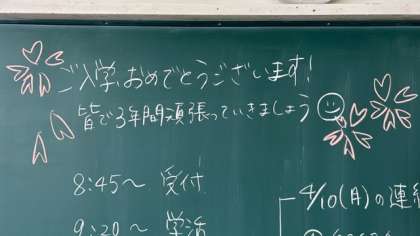 ご入学、おめでとうございます!
皆で3年間頑張っていきましょう
8:45〜 受付
9:20〜 学活
4/10(月)の連